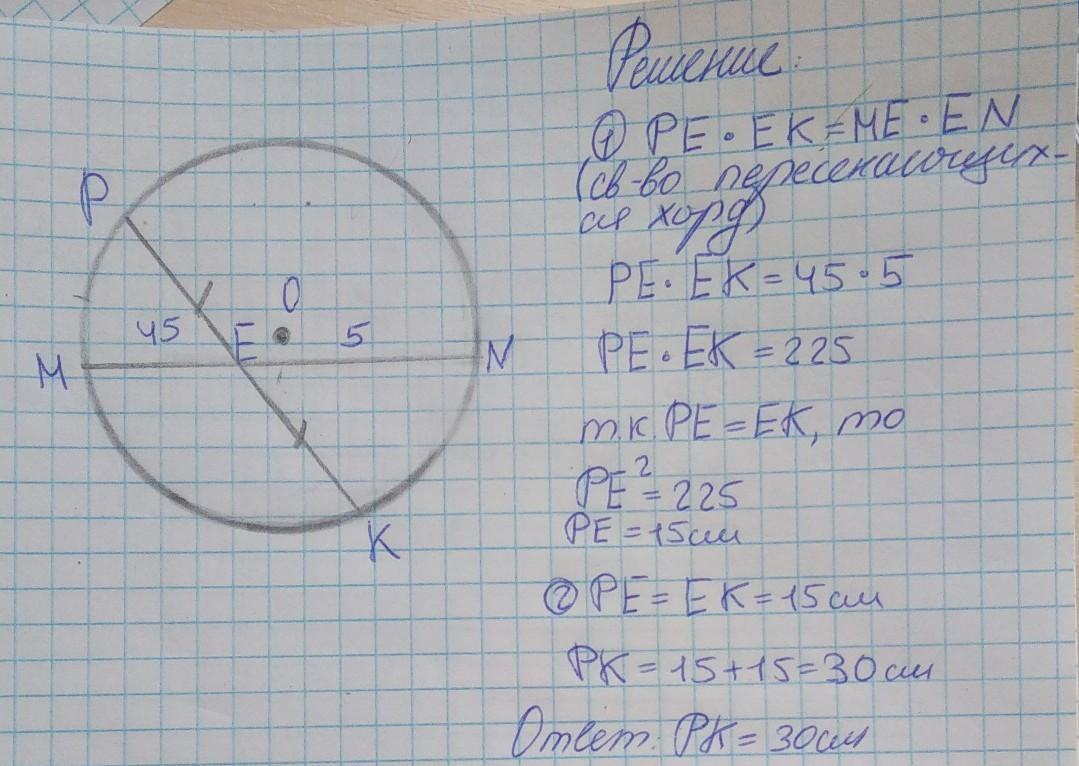 Решение:
① PE · EK = ME · EN
(св-во пересекающих-
ся хорд)
PE · EK = 45 · 5
PE · EK = 225
т.к. PE = EK, то
PE² = 225
PE = 15см
② PE = EK = 15см
PK = 15+15=30см
Ответ: PK = 30см
P
O
45
E
5
M
N
K